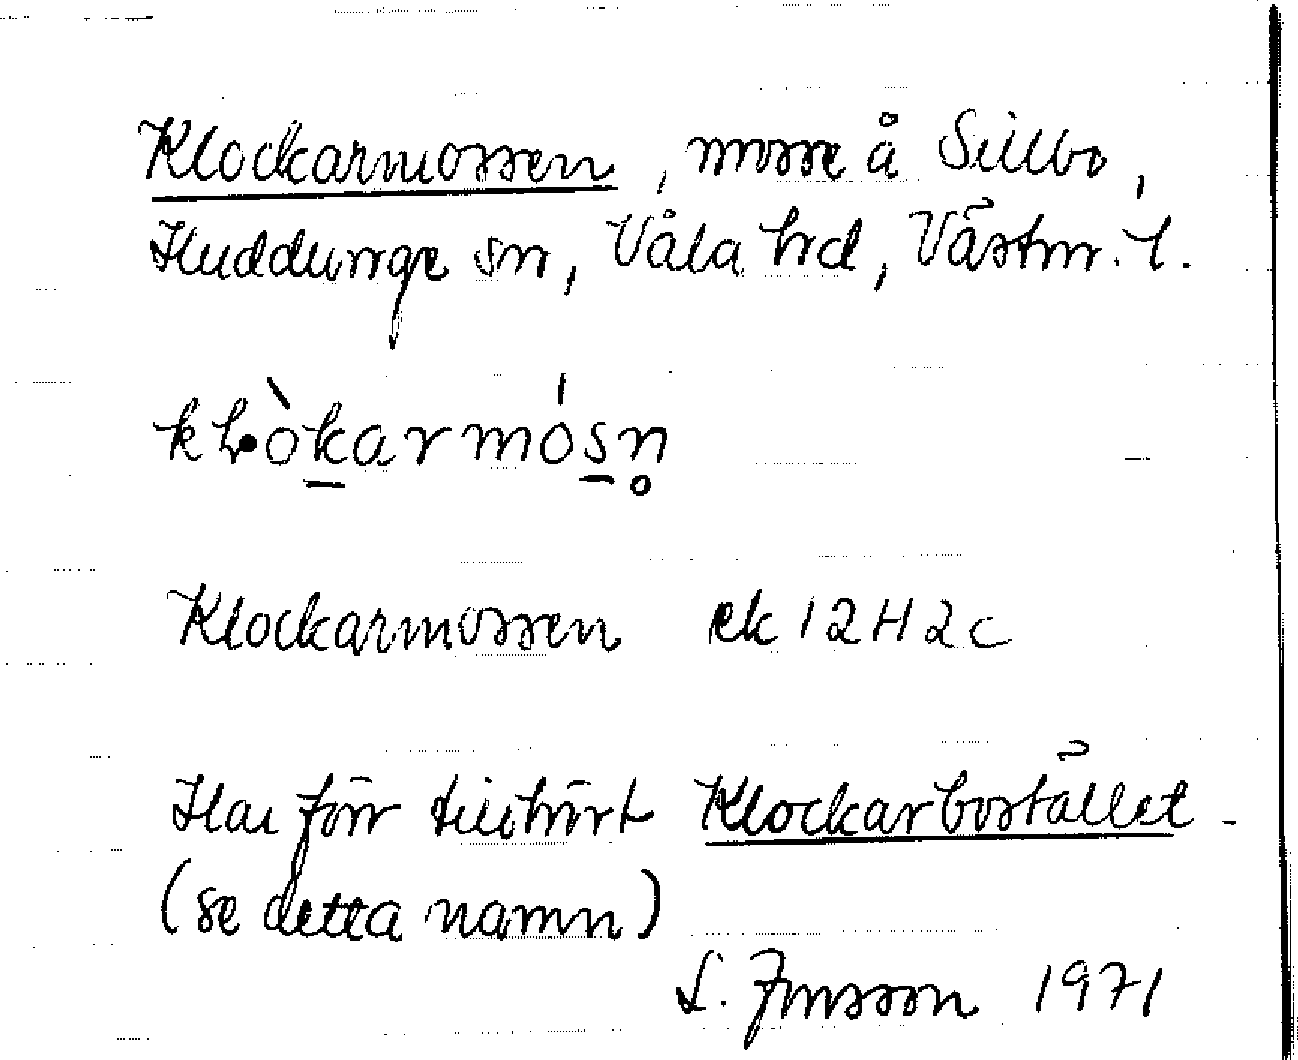 Klockarmossen, mosse å Sillbo,
Huddunge sn, Våla hd, Västm. l.
kḷòkarmósn̥
Klockarmossen ek 12H2c
Har förr tillhört Klockarbostället
(se detta namn)
L. Jonsson 1971